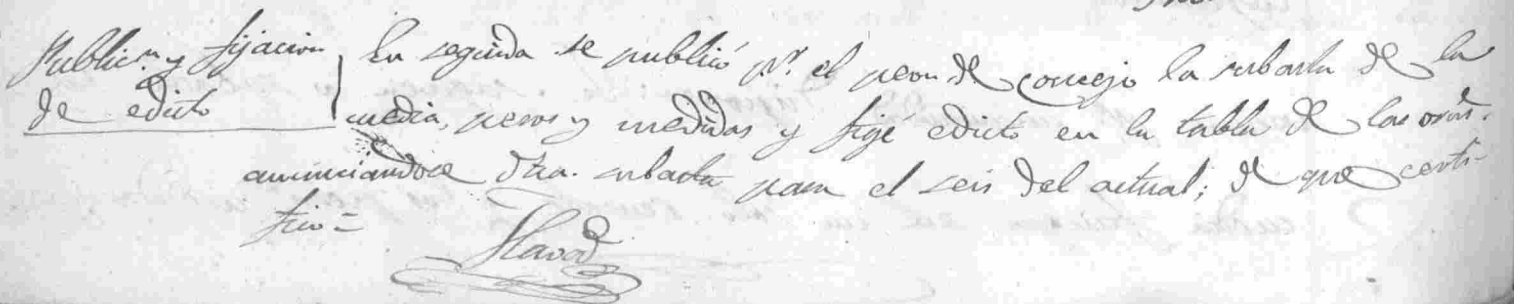 Public.n y fijacion
de edicto
En seguida se publicó pr. el peon de concejo la subasta de la
media, pesos y medidas y fijé edicto en la tabla de los ords.
anunciandose dha. subasta para el seis del actual; de que certi-
fico=